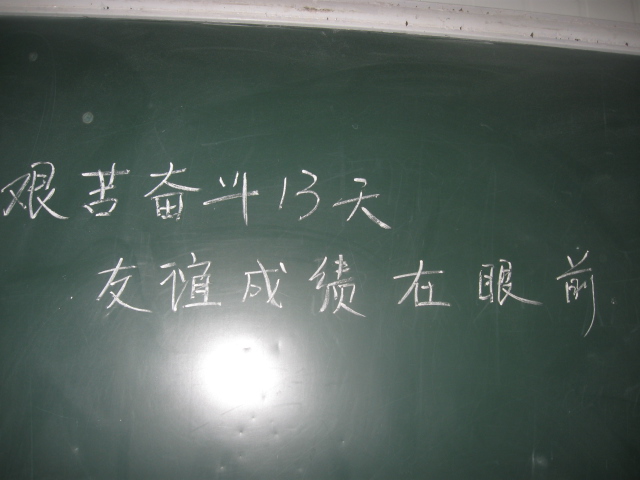 艰苦奋斗13天
友谊成绩在眼前